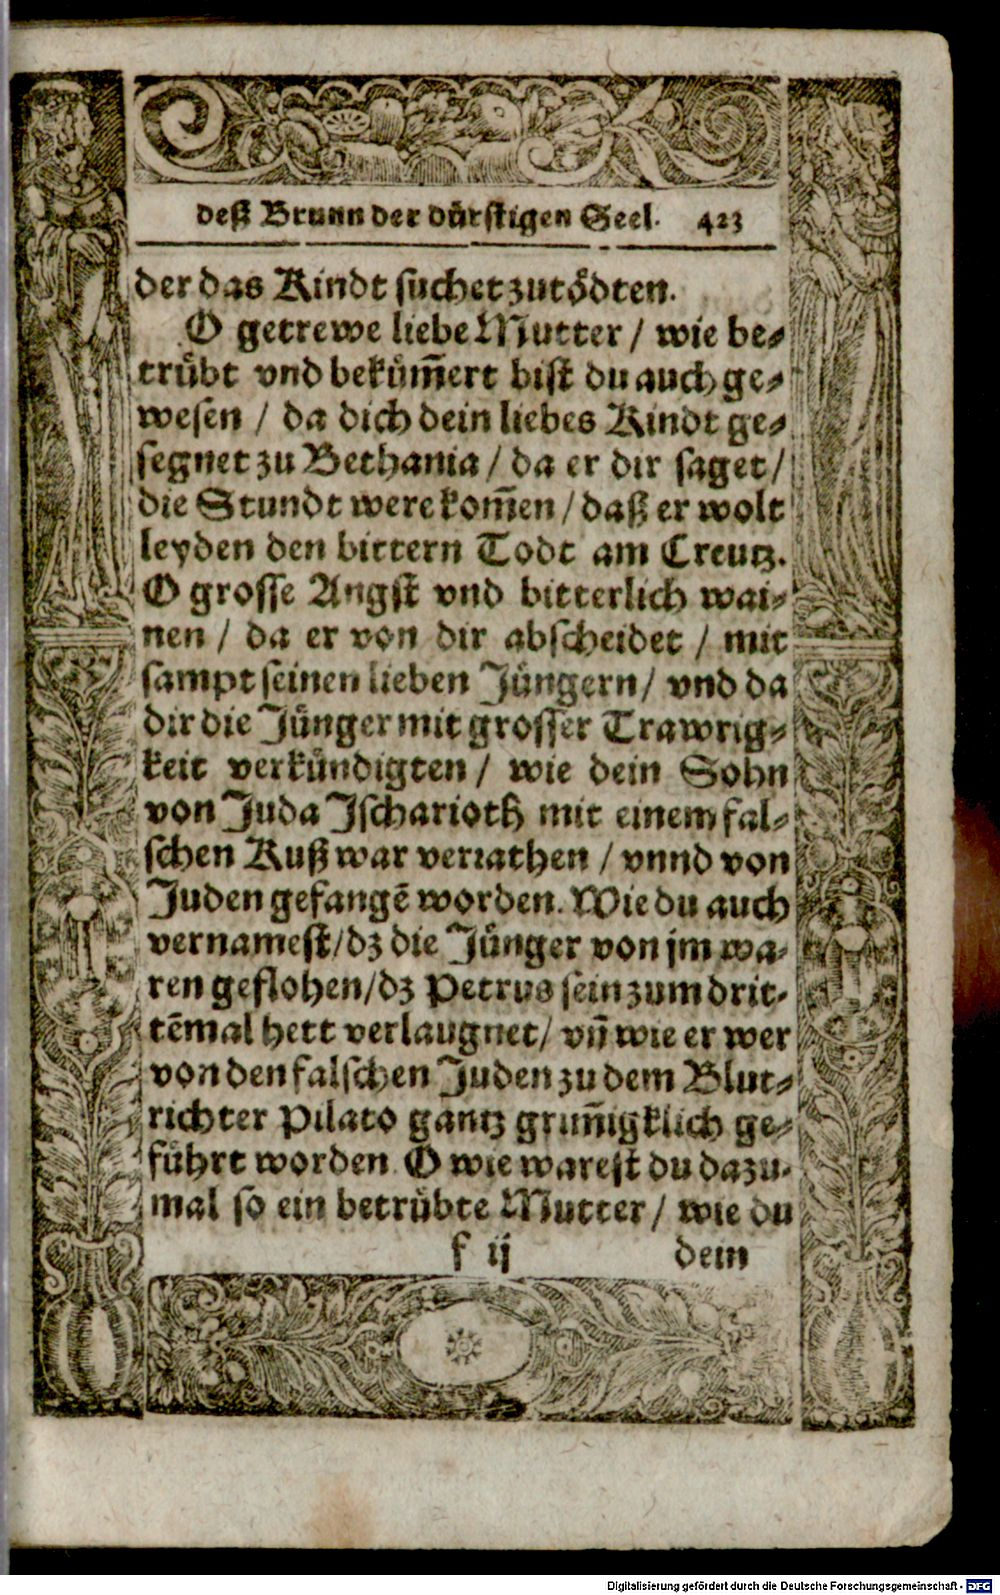 deß Brunn der dürstigen Seel. 423
der das Kindt suchet zutödten.
O getrewe liebe Mutter / wie be⸗
trübt vnd bekům̃ert bist du auch ge⸗
wesen / da dich dein liebes Kindt ge⸗
segnet zu Bethania / da er dir saget /
die Stundt were kom̃en / daß er wolt
leyden den bittern Todt am Creutz.
O grosse Angst vnd bitterlich wai⸗
nen / da er von dir abscheidet / mit
sampt seinen lieben Jüngern / vnd da
dir die Jünger mit grosser Trawrig⸗
keit verkündigten / wie dein Sohn
von Juda Jscharioth mit einem fal⸗
schen Kuß war verrathen / vnnd von
Juden gefangē worden. Wie du auch
vernamest / dz die Jünger von jm wa⸗
ren geflohen / dz Petrus sein zum drit⸗
tēmal hett verlaugnet / vñ wie er wer
von den falschen Juden zu dem Blut⸗
richter Pilato gantz grim̃igklich ge⸗
führt worden. O wie warest du dazu⸗
mal so ein betrübte Mutter / wie du
f ij dein
Digitalisierung gefördert durch die Deutsche Forschungsgemeinschaft - DFG